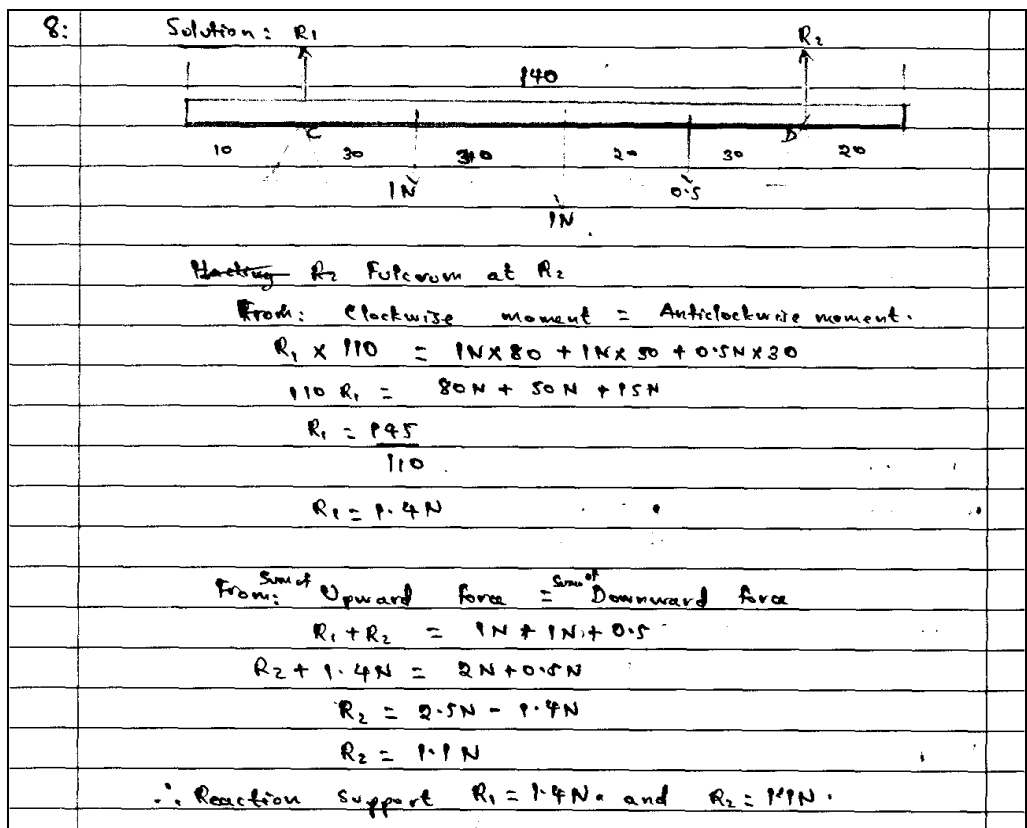 8: Solution: R₁ R₂
140
C D
10 30 30 20 30 20
1N 0.5
1N
R₂ Fulcrum at R₂
From: Clockwise moment = Anticlockwise moment.
R₁ × 110 = 1N×80 + 1N×50 + 0.5N×30
110 R₁ = 80N + 50N + 15N
R₁ = 145
110
R₁ = 1.4N
From: Sum of Upward force = Sum of Downward force
R₁ + R₂ = 1N + 1N + 0.5
R₂ + 1.4N = 2N + 0.5N
R₂ = 2.5N - 1.4N
R₂ = 1.1N
∴ Reaction Support R₁ = 1.4N. and R₂ = 1.1N.